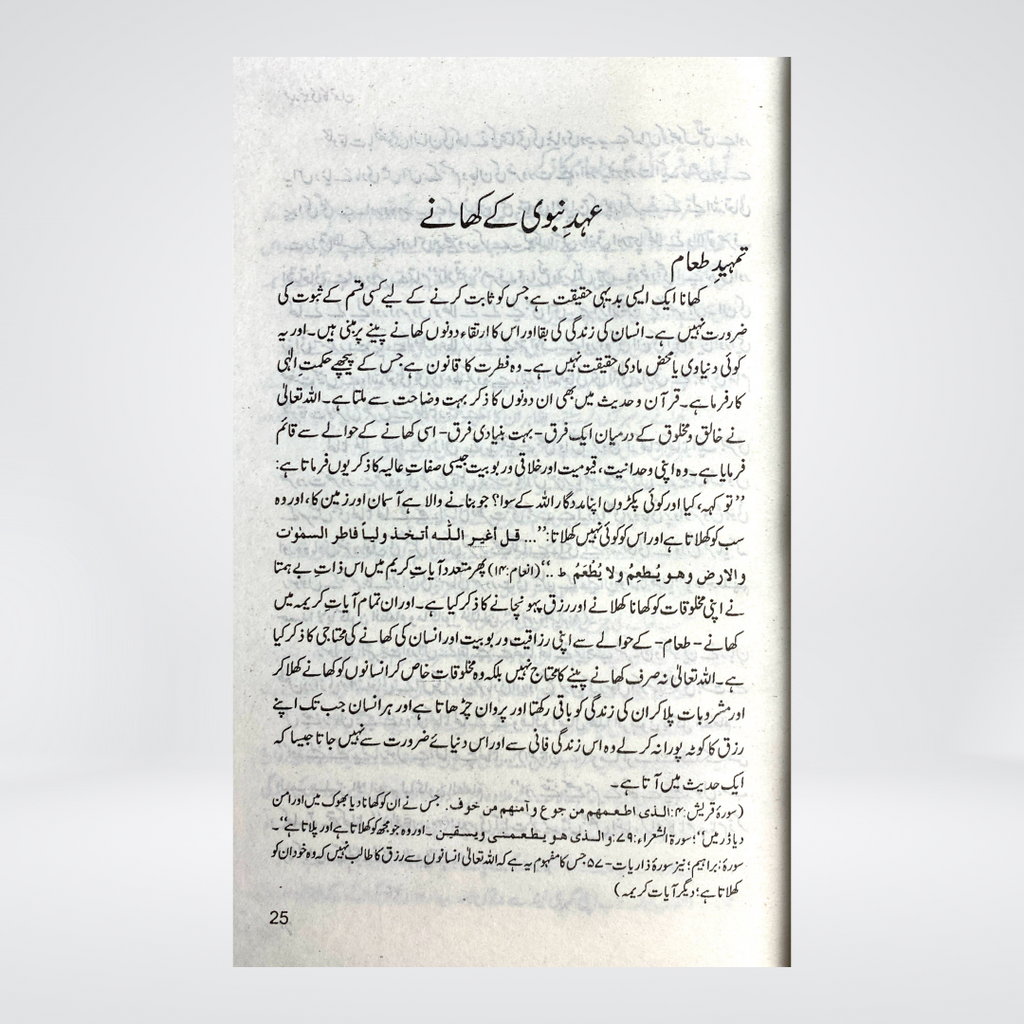 عہدِ نبوی کے کھانے
تمہیدِ طعام
کھانا ایک ایسی بدیہی حقیقت ہے جس کو ثابت کرنے کے لیے کسی قسم کے ثبوت کی
ضرورت نہیں ہے۔ انسان کی زندگی کی بقا اور اس کا ارتقاء دونوں کھانے پینے پر مبنی ہیں۔ اور یہ
کوئی دنیاوی یا محض مادی حقیقت نہیں ہے۔ وہ فطرت کا قانون ہے جس کے پیچھے حکمتِ الٰہی
کارفرما ہے۔ قرآن وحدیث میں بھی ان دونوں کا ذکر بہت وضاحت سے ملتا ہے۔ اللہ تعالیٰ
نے خالق ومخلوق کے درمیان ایک فرق - بہت بنیادی فرق - اسی کھانے کے حوالے سے قائم
فرمایا ہے۔ وہ اپنی وحدانیت، قیومیت اور خلاقی وربوبیت جیسی صفاتِ عالیہ کا ذکر یوں فرماتا ہے:
”تو کہہ، کیا اور کوئی پکڑوں اپنا مددگار اللہ کے سوا؟ جو بنانے والا ہے آسمان اور زمین کا، اور وہ
سب کو کھلاتا ہے اور اس کو کوئی نہیں کھلاتا: ”... قل أغیر اللّٰہ أتخذ ولیاً فاطر السمٰوٰت
والارض وھو یُطعِمُ ولا یُطْعَمُ ط ..“ (انعام:۱۴) پھر متعدد آیاتِ کریم میں اس ذاتِ بے ہمتا
نے اپنی مخلوقات کو کھانا کھلانے اور رزق پہونچانے کا ذکر کیا ہے۔ اور ان تمام آیاتِ کریمہ میں
کھانے - طعام - کے حوالے سے اپنی رزاقیت وربوبیت اور انسان کی کھانے کی محتاجی کا ذکر کیا
ہے۔ اللہ تعالیٰ نہ صرف کھانے پینے کا محتاج نہیں بلکہ وہ مخلوقات خاص کر انسانوں کو کھانے کھلا کر
اور مشروبات پلا کر ان کی زندگی کو باقی رکھتا اور پروان چڑھاتا ہے اور ہر انسان جب تک اپنے
رزق کا کوٹہ پورا نہ کر لے وہ اس زندگی فانی سے اور اس دنیائے ضرورت سے نہیں جاتا جیسا کہ
ایک حدیث میں آتا ہے۔
(سورۂ قریش:۴: الذی اطعمھم من جوع وآمنھم من خوف. جس نے ان کو کھانا دیا بھوک میں اور امن
دیا ڈر میں“؛ سورۃ الشعراء:۷۹: والذی ھو یطعمنی ویسقین ۔ اور وہ جو مجھ کو کھلاتا ہے اور پلاتا ہے“۔
سورۂ ابراہیم؛ نیز سورۂ ذاریات-۵۷ جس کا مفہوم یہ ہے کہ اللہ تعالیٰ انسانوں سے رزق کا طالب نہیں کہ وہ خود ان کو
کھلاتا ہے؛ دیگر آیات کریمہ)
25